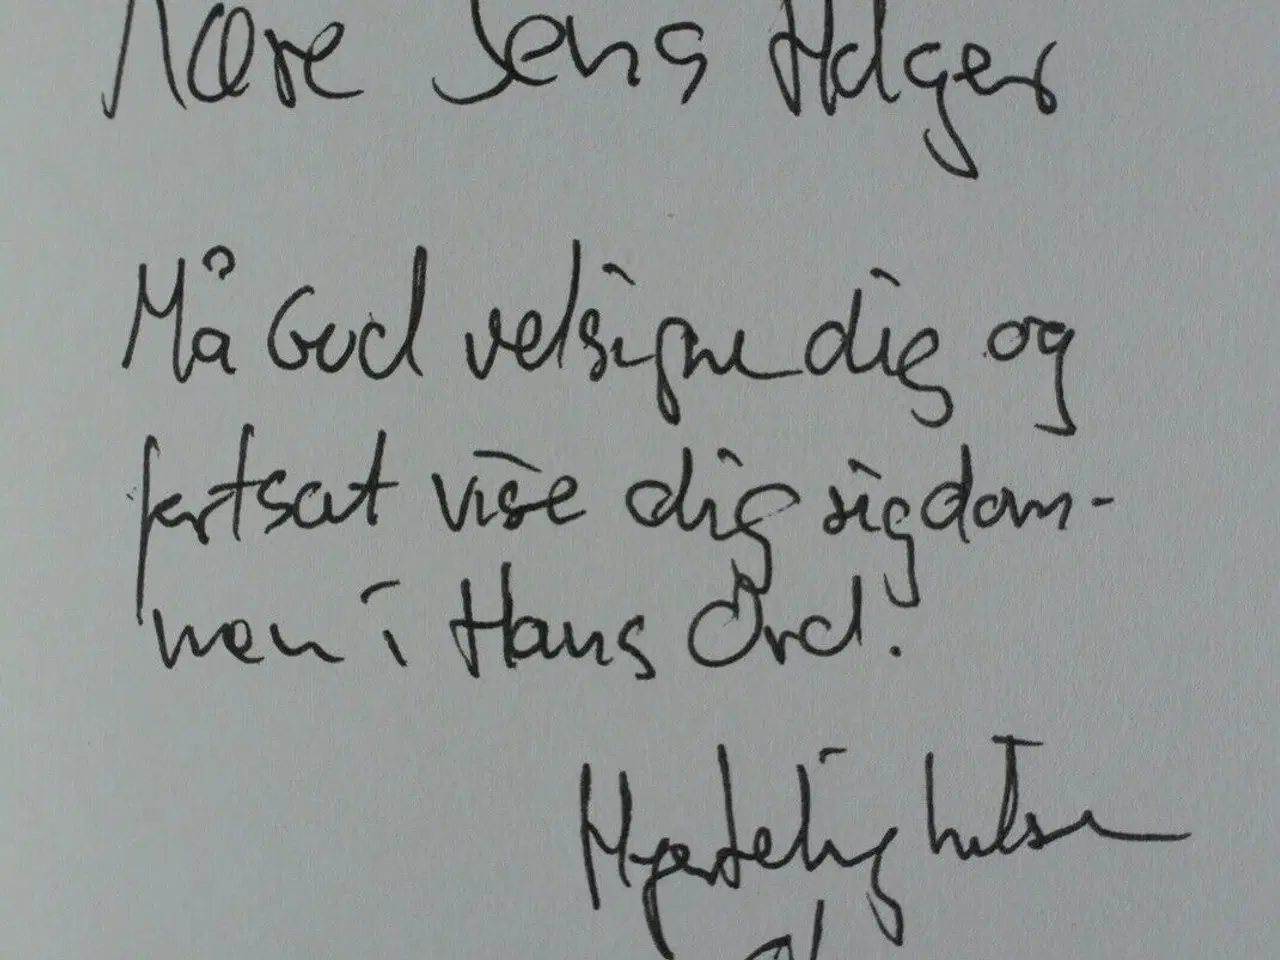 Kære Jens Holger
Må Gud velsigne dig og
fortsat vise dig sigdom-
men i Hans Ord.
Hjertelig hilsen